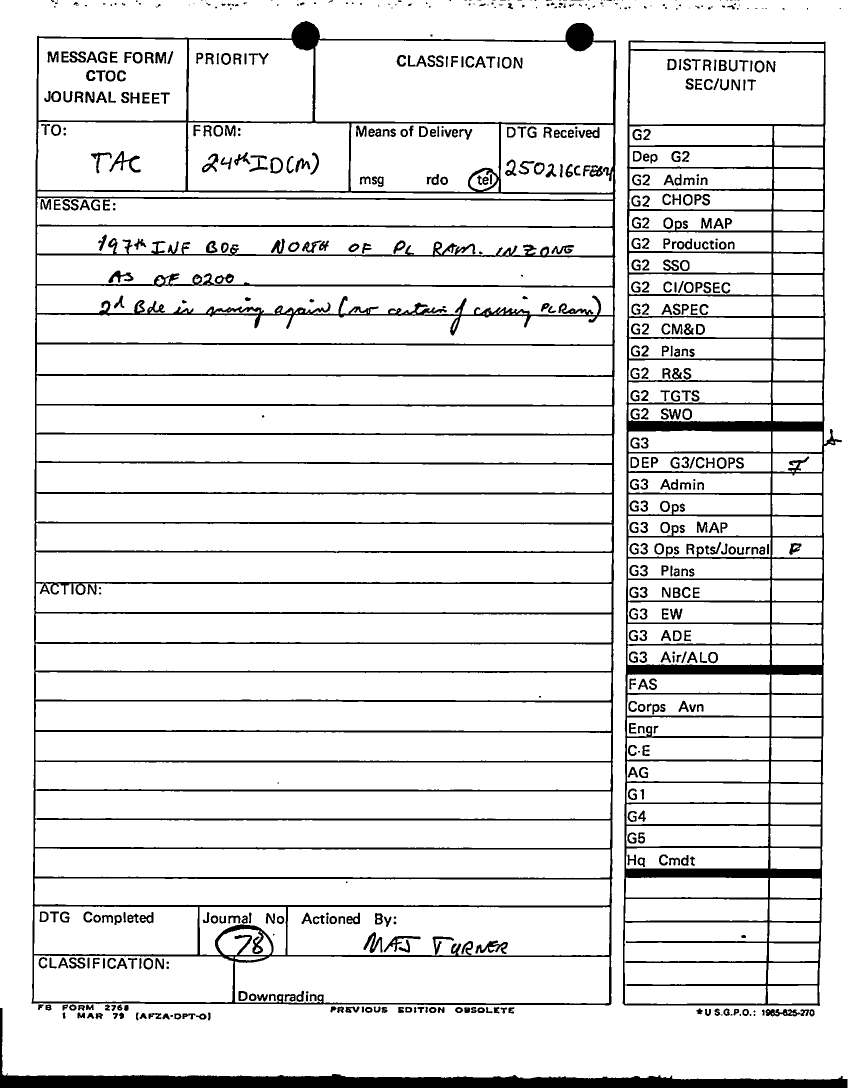 MESSAGE FORM/
CTOC
JOURNAL SHEET
PRIORITY
CLASSIFICATION
TO:
TAC
FROM:
24th ID(M)
Means of Delivery
msg rdo tel
DTG Received
250216CFEB91
MESSAGE:
197th INF BDE NORTH OF PL RAM. IN ZONE
AS OF 0200.
2d Bde is moving again (no certain of crossing PL Ram)
ACTION:
DTG Completed
Journal No
78
Actioned By:
MAJ TURNER
CLASSIFICATION:
Downgrading
FB FORM 2768
1 MAR 79 (AFZA-DPT-O)
PREVIOUS EDITION OBSOLETE
DISTRIBUTION
SEC/UNIT
G2
Dep G2
G2 Admin
G2 CHOPS
G2 Ops MAP
G2 Production
G2 SSO
G2 CI/OPSEC
G2 ASPEC
G2 CM&D
G2 Plans
G2 R&S
G2 TGTS
G2 SWO
G3
DEP G3/CHOPS
G3 Admin
G3 Ops
G3 Ops MAP
G3 Ops Rpts/Journal F
G3 Plans
G3 NBCE
G3 EW
G3 ADE
G3 Air/ALO
FAS
Corps Avn
Engr
C-E
AG
G1
G4
G5
Hq Cmdt
*U.S.G.P.O.: 1985-625-270